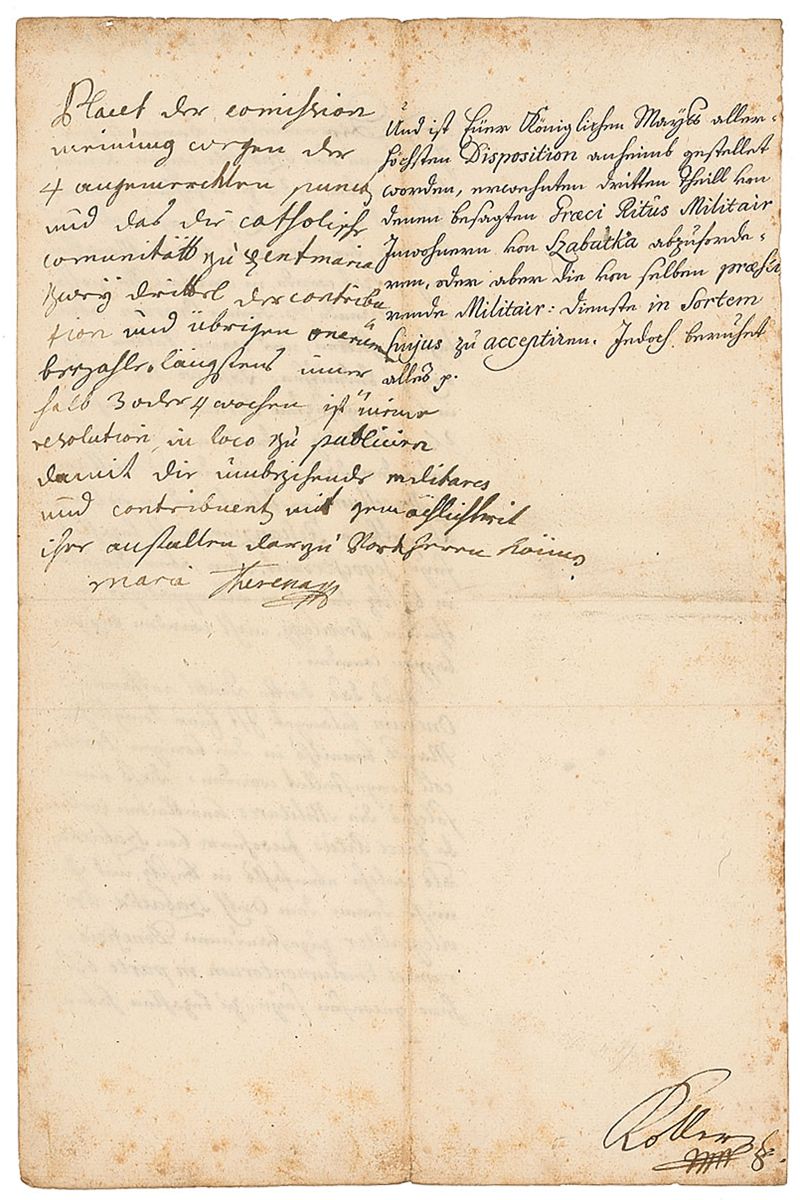 Placet der comission
meinung wegen der
4 angemerckten puncten
und das die catholische
comunität zu Zentmaria
zwey drittel der contribu
tion und übrigen onerum
bezahle, längstens inner
halb 3 oder 4 wochen ist meine
resolution in loco zu publiciren
damit die umbziehende militares
und contribuenten mit gemächlichkeit
ihre anstalten darzu Vorkherren könne.
maria Theresia
Und ist Euer Königlichen Mayts aller-
höchsten Disposition anheimb gestellet
worden, erwehnten dritten Theill von
denen besagten Græci Ritûs Militair
Inwohnern von Szabatka abzuforde-
ren, oder aber die von selben præsti
rende Militair: Dienste in Sortem
hujus zu acceptiren. Jedoch beruhet
alles p.
Koller